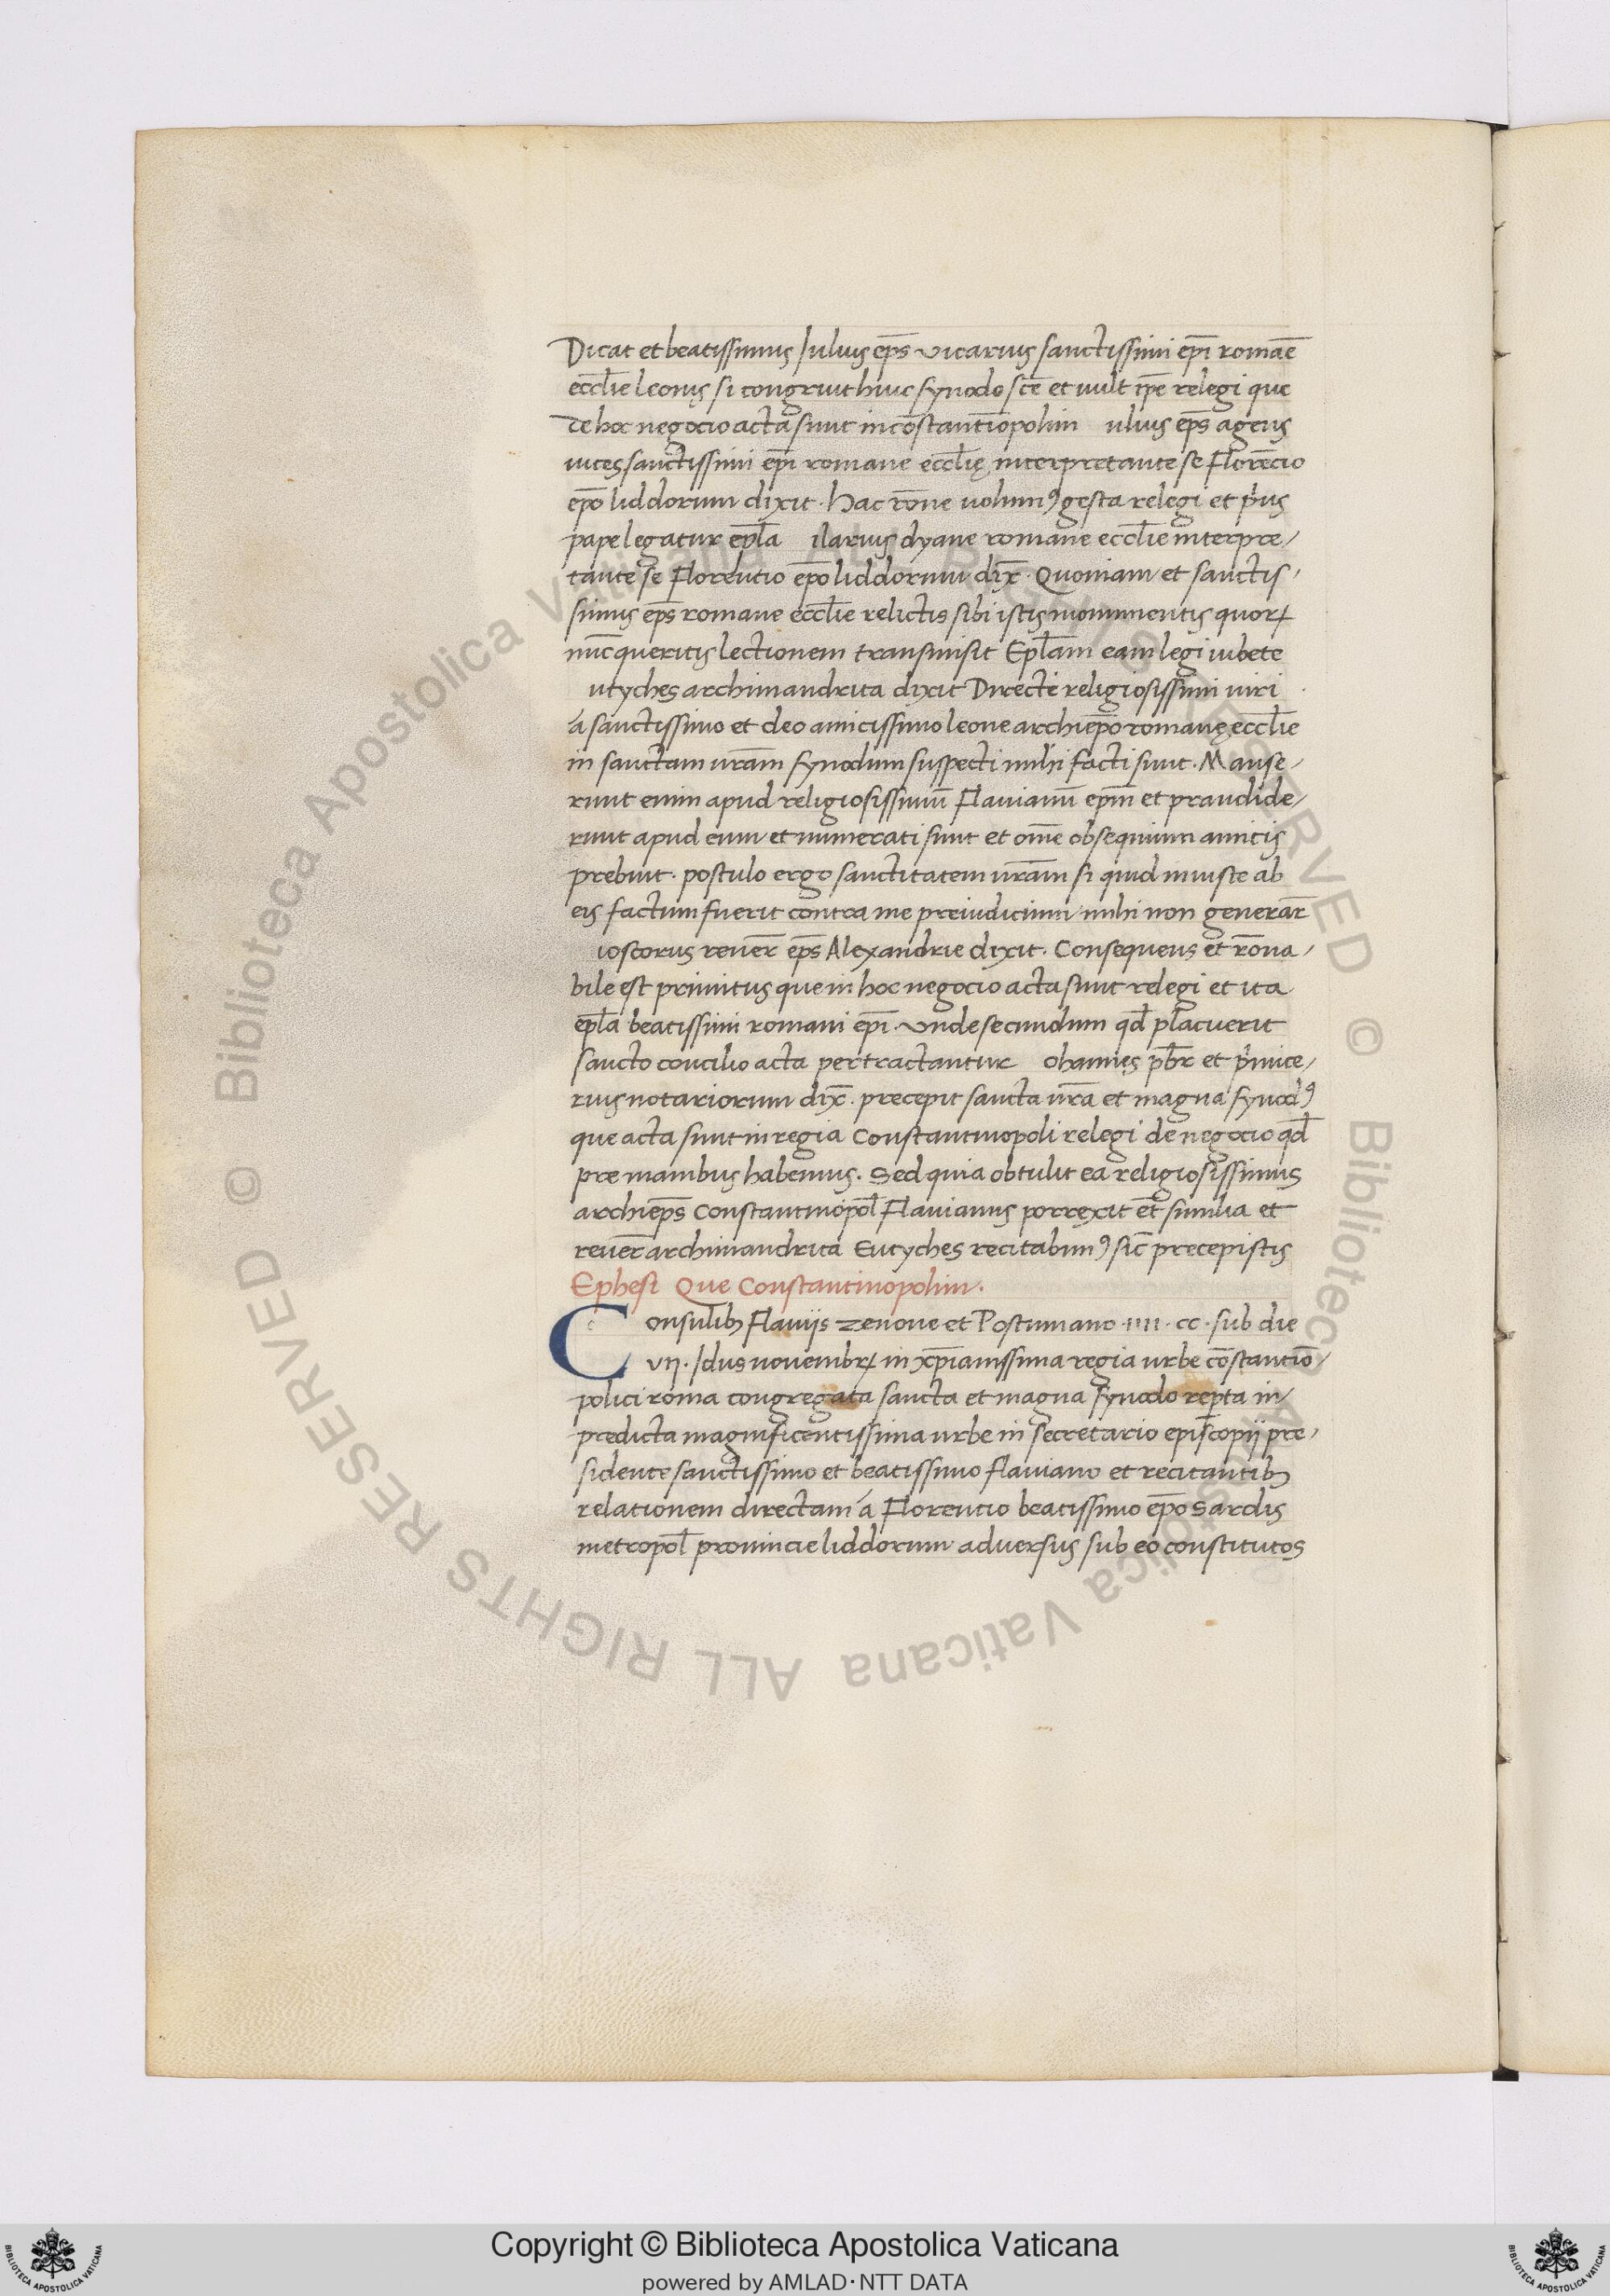 Dicat et beatissimus Julius ep̄s vicarius sanctissimi ep̄i romaē
eccl̄ie leonis si congruit huic synodo sc̄e et uult ip̄e relegi que
de hoc negocio acta sunt in cōstantīopolim ulius ep̄s agens
uices sanctissimi ep̄i romane eccl̄ię interpretante se Florēcio
ep̄o liddorum dixit. hac rōne uolumꝰ gesta relegi et pͥus
pape legatur ep̄la ilarius dyane romane eccl̄ie interpre/
tante se Florentio ep̄o liddorum dix̄. Quoniam et sanctis/
simus ep̄s romane eccl̄ie relictis sibi istis monumentis quoꝝ
nūc queritis lectionem transmisit Epl̄am eam legi iubete
utyches archimandrita dixit Directi religiosissimi uiri
á sanctissimo et deo amicissimo leone archiep̄o romanę eccl̄ie
in sanctam ur̄am synodum suspecti mihi facti sunt. Manse/
runt enim apud religiosissimū Flauianū ep̄m et prandide/
runt apud eum et numerati sunt et om̄e obsequium amicis
prebuit. postulo ergo sanctitatem ur̄am si quid iniuste ab
eis factum fuerit contra me preiudicium mihi non generar̄
ioscorus reuer̄ ep̄s Alexandrie dixit. Consequens et rōna/
bile est primitus que in hoc negocio acta sunt relegi et ita
epl̄a beatissimi romani ep̄i. unde secundum qd̄ placuerit
sancto concilio acta pertractantur ohannes pb̄r et pͥmice/
rius notariorum dix̄. precepit sancta ur̄a et magna synodꝰ
que acta sunt in regia Constantinopoli relegi de negocio qd̄
pre manibus habemus. Sed quia obtulit ea religiosissimus
archiep̄s Constantinopol̄ Flauianus porrexit et̄ similia et
reuer̄ archimandrita Eutyches recitabimꝰ sic̄ precepistis
Ephesi Que Constantinopolim.
Consulibꝫ Flauijs zenone et Postumano .IIII. cc. sub die
VII. Idus nouembrꝝ in xp̄ianissima regia urbe cōstantiō/
polici roma congregata sancta et magna synodo rep̄ta in
predicta magnificentissima urbe in secretario episcopij pre/
sidente sanctissimo et beatissimo flauiano et recitantibꝫ
relationem directam á Florentio beatissimo ep̄o Sardis
metropol̄ prouincie liddorum adversus sub eo constitutos
© Biblioteca Apostolica Vaticana ALL RIGHTS RESERVED © Biblioteca Apostolica Vaticana ALL RIGHTS RESERVED
Copyright © Biblioteca Apostolica Vaticana
powered by AMLAD·NTT DATA
BIBLIOTECA APOSTOLICA VATICANA
BIBLIOTECA APOSTOLICA VATICANA